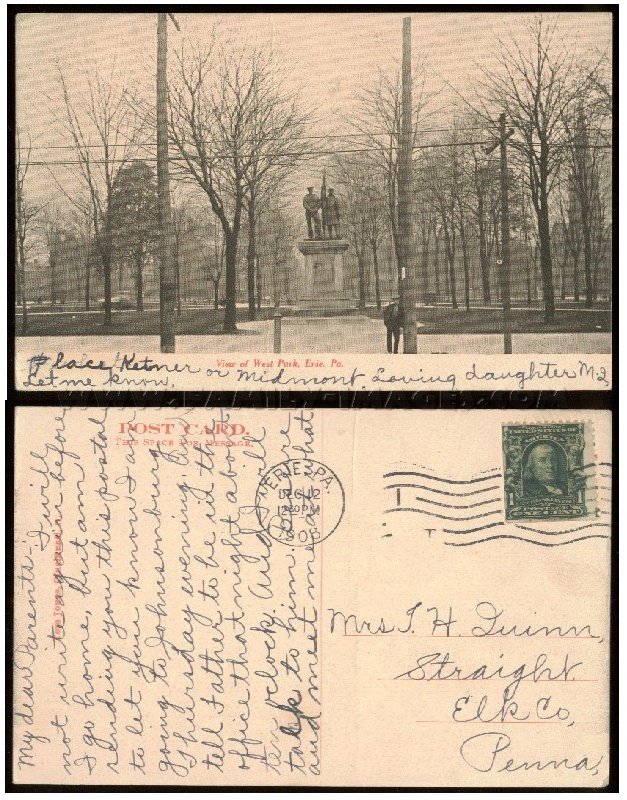 Place Ketner or Midmont. Loving daughter M.Q.
Let me know,
View of West Park, Erie, Pa.
POST CARD.
THIS SPACE FOR MESSAGE.
ERIE, PA.
DEC 12
PM
My dear Parents:- I will
not write to you before
I go home, but am
sending you this postal
to let you know I am
going to Johnsonburg
Thursday evening. You
tell Father to be in the
office that night about
ten o'clock. And I will
talk to him there
and meet me at that
1
ONE CENT
Mrs T. H. Quinn,
Straight.
Elk Co,
Penna,